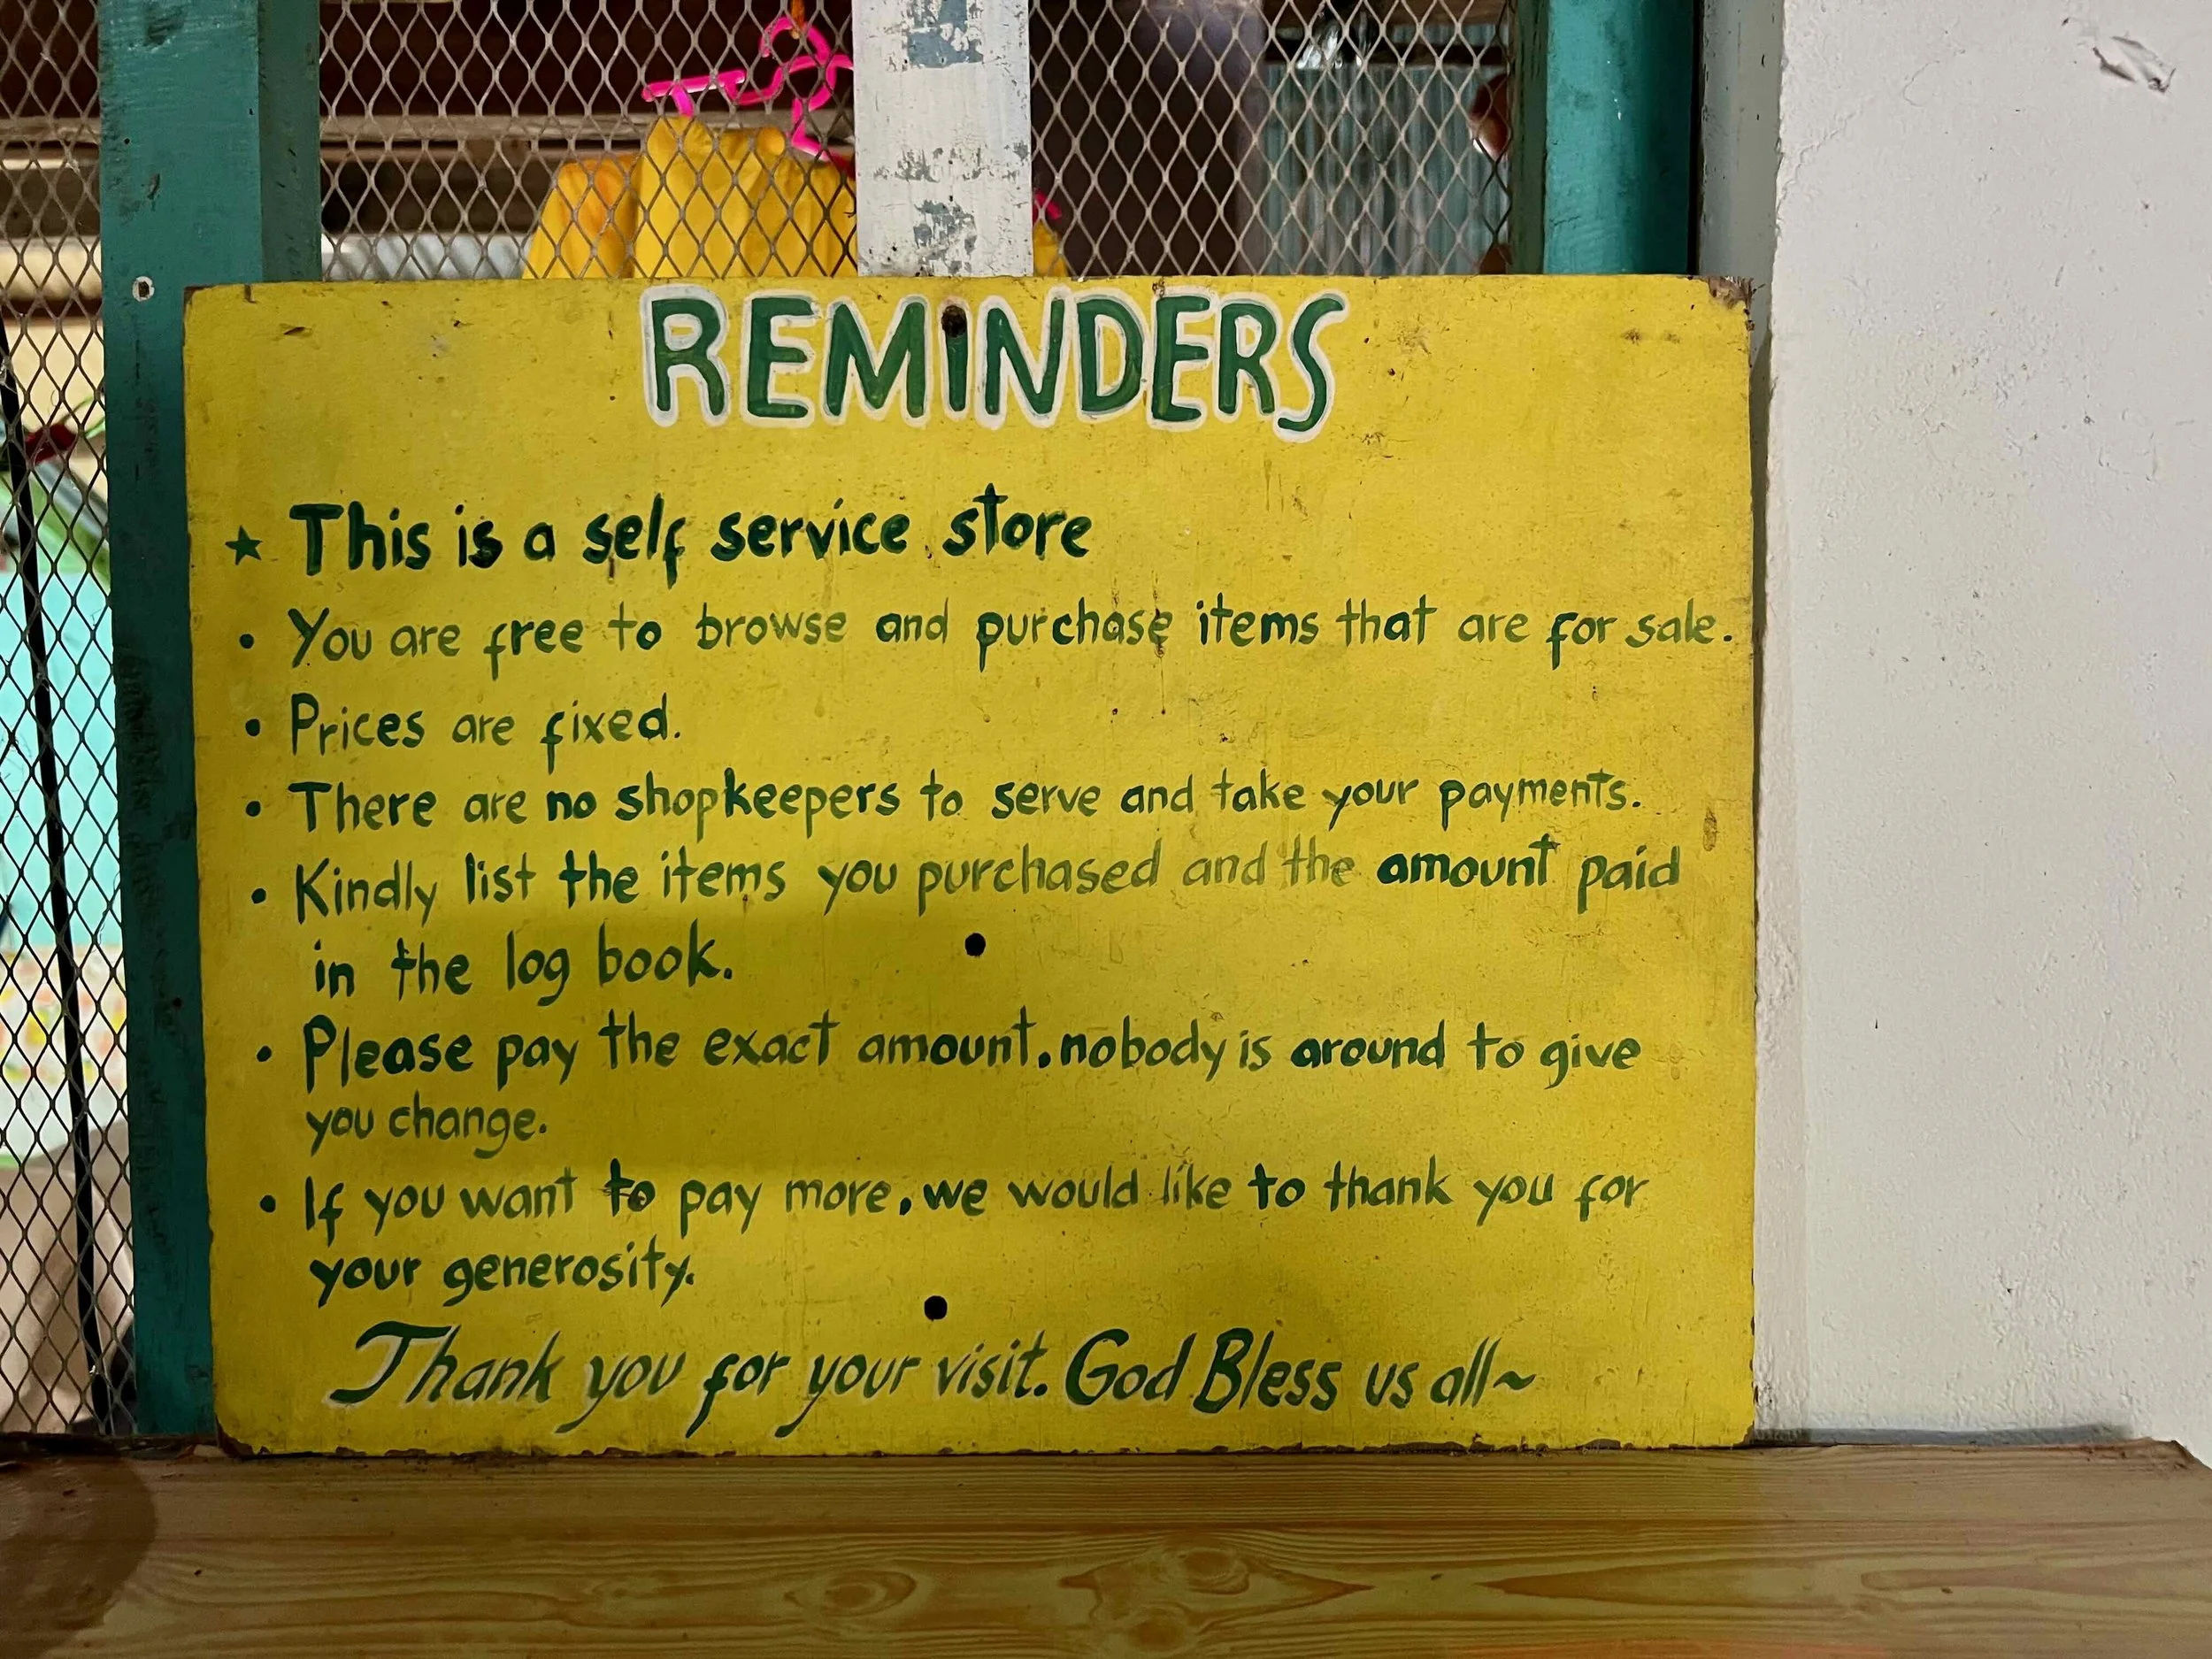 REMINDERS
★ This is a self service store
• You are free to browse and purchase items that are for sale.
• Prices are fixed.
• There are no shopkeepers to serve and take your payments.
• Kindly list the items you purchased and the amount paid
in the log book.
• Please pay the exact amount. nobody is around to give
you change.
• If you want to pay more, we would like to thank you for
your generosity.
Thank you for your visit. God Bless us all~